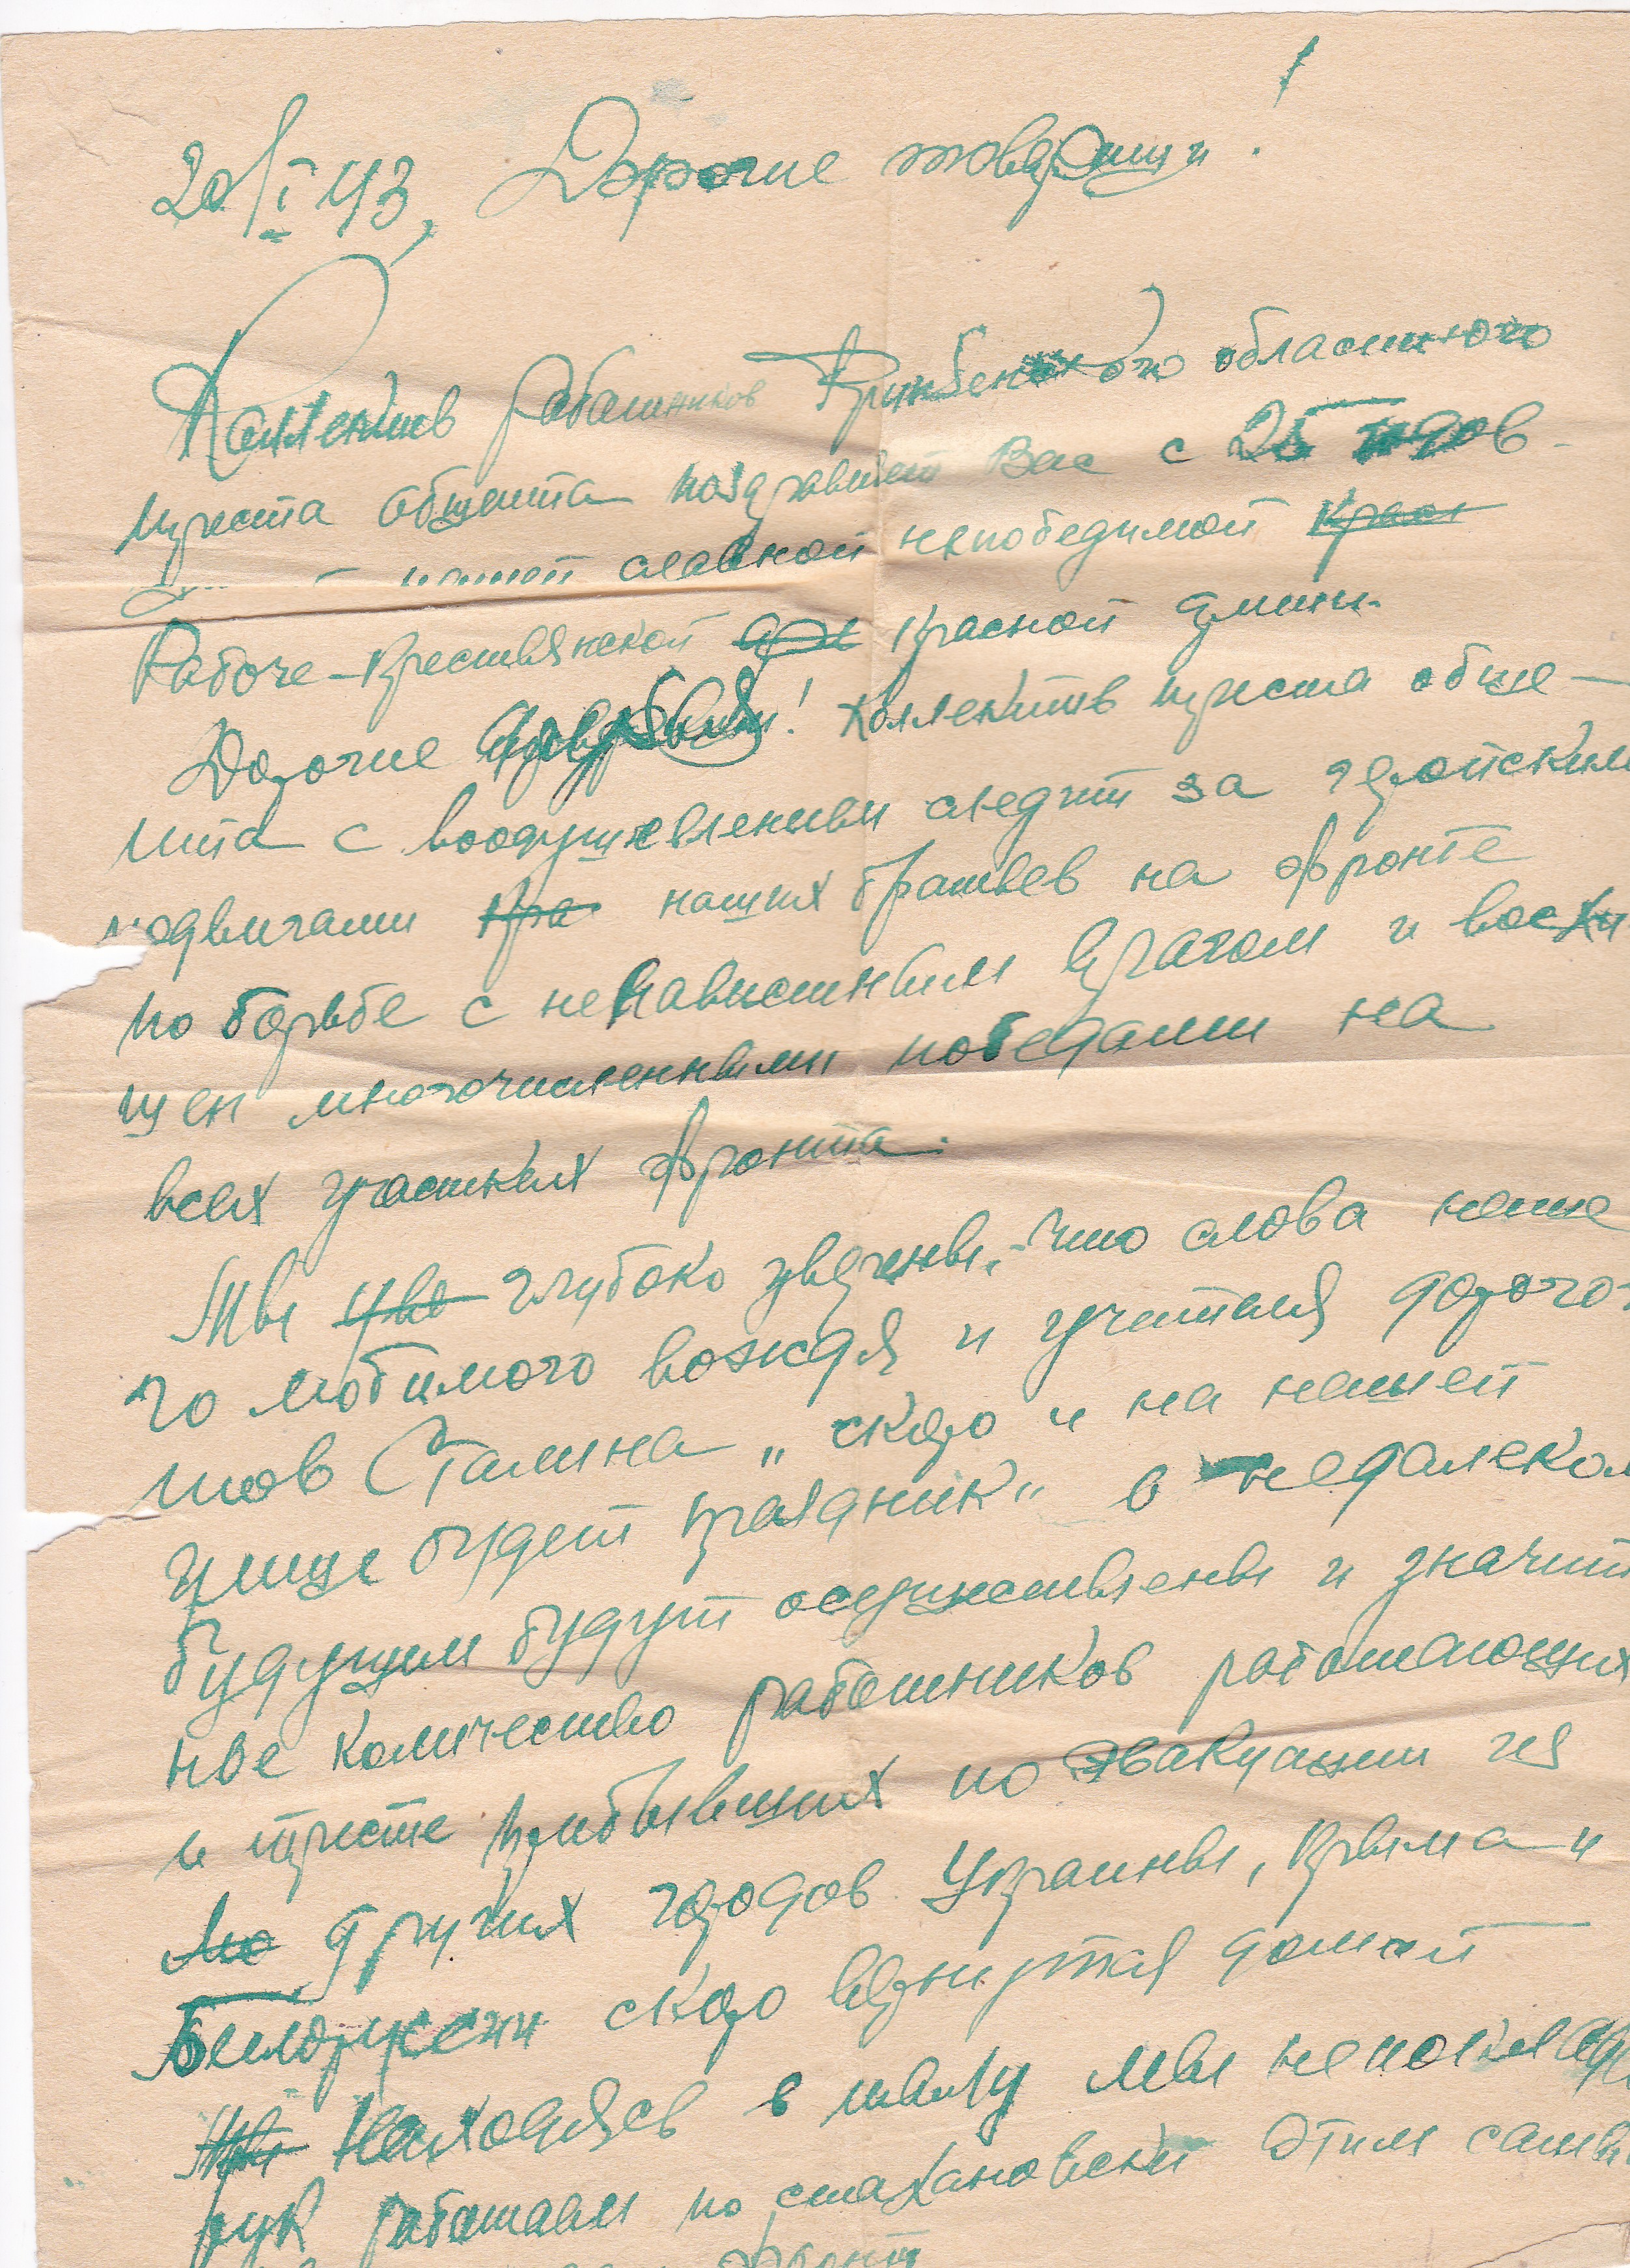 20/I 43, Дорогие товарищи!
Коллектив работников областного
треста общепита поздравляет Вас с 25 годов-
нашей славной непобедимой Крас
Рабоче-крестьянской Красной Армии.
Дорогие ! Коллектив треста обще-
пита с воодушевлением следит за геройскими
подвигами Кра наших братьев на фронте
по борьбе с ненавистным врагом и восхи
щен многочисленными победами на
всех участках фронта.
Мы уве глубоко уверены, что слова наше
го любимого вождя и учителя дорого-
Сталина „скоро и на нашей
улице будет праздник" в недалеком
будущем будут осуществлены и значит
ное количество работников работающих
и тресте прибывших по эвакуации из
других городов Украины, Крыма и
Белоруссии скоро вернутся домой
Мы Находясь в тылу мы не покладая
рук работаем по стахановски этим самым
фронт